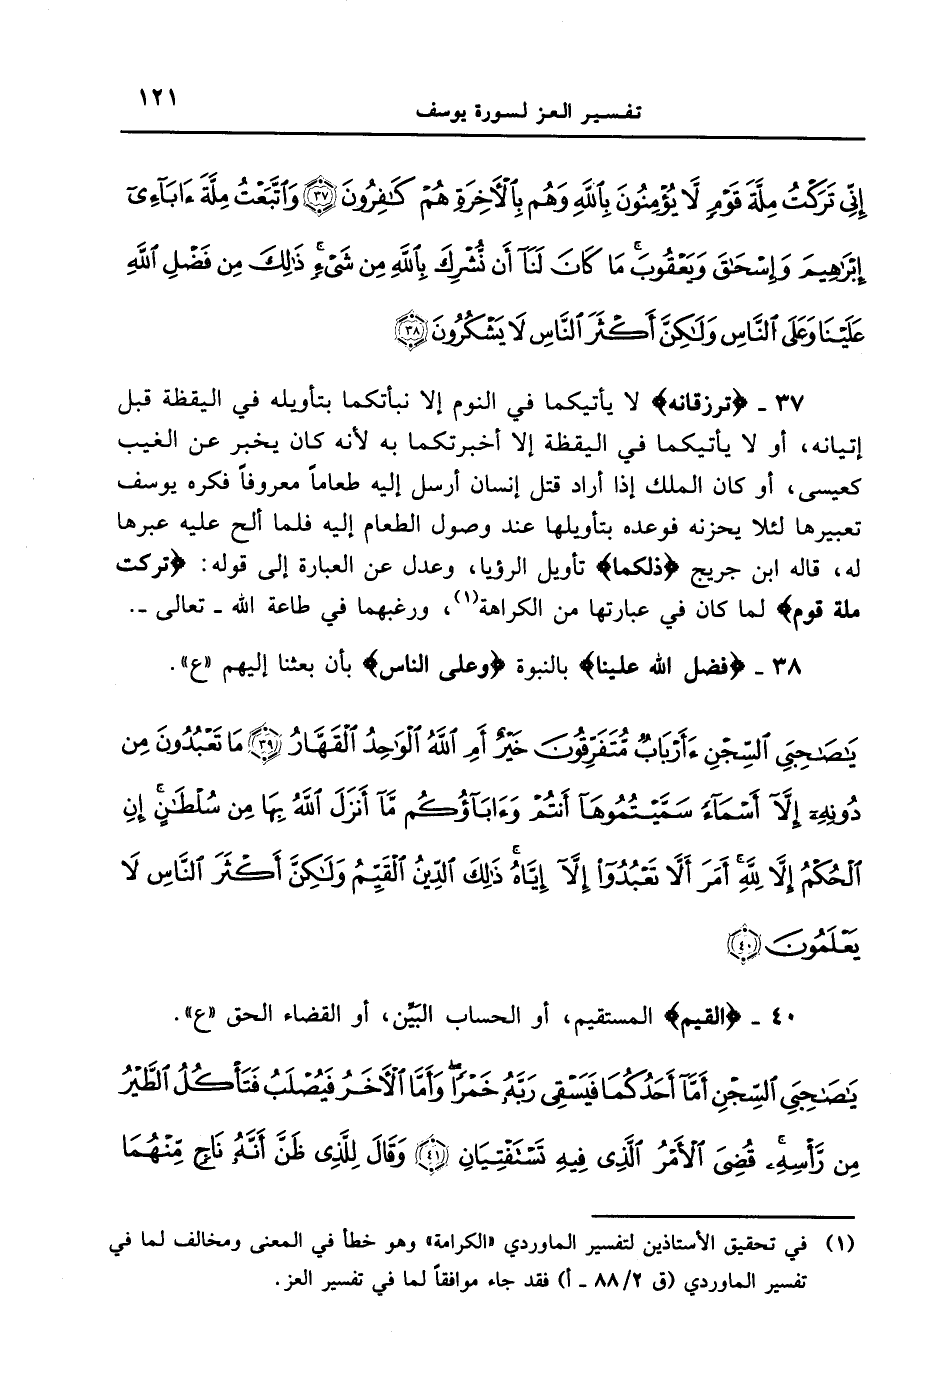 تفسير العز لسورة يوسف
١٢١
إِنِّي تَرَكْتُ مِلَّةَ قَوْمٍ لَّا يُؤْمِنُونَ بِاللَّهِ وَهُم بِالْآخِرَةِ هُمْ كَافِرُونَ ﴿٣٧﴾ وَاتَّبَعْتُ مِلَّةَ ءَابَآءِىٓ
إِبْرَٰهِيمَ وَإِسْحَٰقَ وَيَعْقُوبَ ۚ مَا كَانَ لَنَآ أَن نُّشْرِكَ بِٱللَّهِ مِن شَىْءٍ ۚ ذَٰلِكَ مِن فَضْلِ ٱللَّهِ
عَلَيْنَا وَعَلَى ٱلنَّاسِ وَلَٰكِنَّ أَكْثَرَ ٱلنَّاسِ لَا يَشْكُرُونَ ﴿٣٨﴾
٣٧ ـ ﴿ترزقانه﴾ لا يأتيكما في النوم إلا نبأتكما بتأويله في اليقظة قبل
إتيانه، أو لا يأتيكما في اليقظة إلا أخبرتكما به لأنه كان يخبر عن الغيب
كعيسى، أو كان الملك إذا أراد قتل إنسان أرسل إليه طعاماً معروفاً فكره يوسف
تعبيرها لئلا يحزنه فوعده بتأويلها عند وصول الطعام إليه فلما ألح عليه عبرها
له، قاله ابن جريج ﴿ذلكما﴾ تأويل الرؤيا، وعدل عن العبارة إلى قوله: ﴿تركت
ملة قوم﴾ لما كان في عبارتها من الكراهة(١)، ورغبهما في طاعة الله ـ تعالى ـ.
٣٨ ـ ﴿فضل الله علينا﴾ بالنبوة ﴿وعلى الناس﴾ بأن بعثنا إليهم «ع».
يَٰصَٰحِبَىِ ٱلسِّجْنِ ءَأَرْبَابٌ مُّتَفَرِّقُونَ خَيْرٌ أَمِ ٱللَّهُ ٱلْوَٰحِدُ ٱلْقَهَّارُ ﴿٣٩﴾ مَا تَعْبُدُونَ مِن
دُونِهِۦٓ إِلَّآ أَسْمَآءً سَمَّيْتُمُوهَآ أَنتُمْ وَءَابَآؤُكُم مَّآ أَنزَلَ ٱللَّهُ بِهَا مِن سُلْطَٰنٍ ۚ إِنِ
ٱلْحُكْمُ إِلَّا لِلَّهِ ۚ أَمَرَ أَلَّا تَعْبُدُوٓا۟ إِلَّآ إِيَّاهُ ۚ ذَٰلِكَ ٱلدِّينُ ٱلْقَيِّمُ وَلَٰكِنَّ أَكْثَرَ ٱلنَّاسِ لَا
يَعْلَمُونَ ﴿٤٠﴾
٤٠ ـ ﴿القيم﴾ المستقيم، أو الحساب البيِّن، أو القضاء الحق «ع».
يَٰصَٰحِبَىِ ٱلسِّجْنِ أَمَّآ أَحَدُكُمَا فَيَسْقِى رَبَّهُۥ خَمْرًا ۖ وَأَمَّا ٱلْءَاخَرُ فَيُصْلَبُ فَتَأْكُلُ ٱلطَّيْرُ
مِن رَّأْسِهِۦ ۚ قُضِىَ ٱلْأَمْرُ ٱلَّذِى فِيهِ تَسْتَفْتِيَانِ ﴿٤١﴾ وَقَالَ لِلَّذِى ظَنَّ أَنَّهُۥ نَاجٍ مِّنْهُمَا
(١) في تحقيق الأستاذين لتفسير الماوردي «الكرامة» وهو خطأ في المعنى ومخالف لما في
تفسير الماوردي (ق ٨٨/٢ ـ أ) فقد جاء موافقاً لما في تفسير العز.